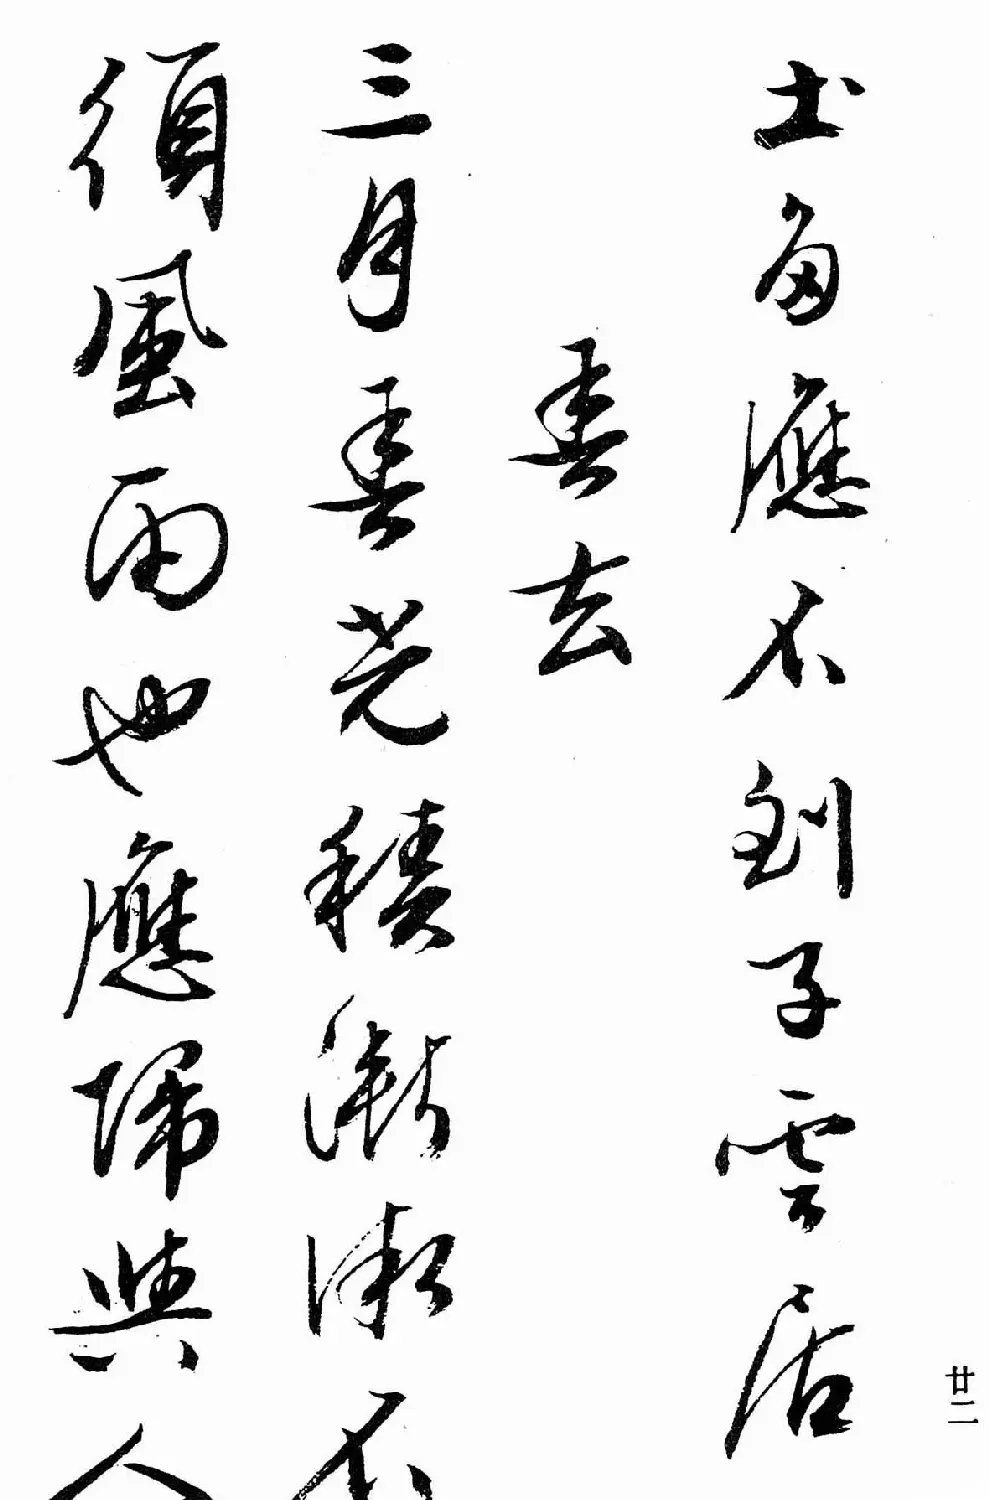 土多應不到子雲居
春去
三月春光積漸微不
須風雨也應歸與人
廿二